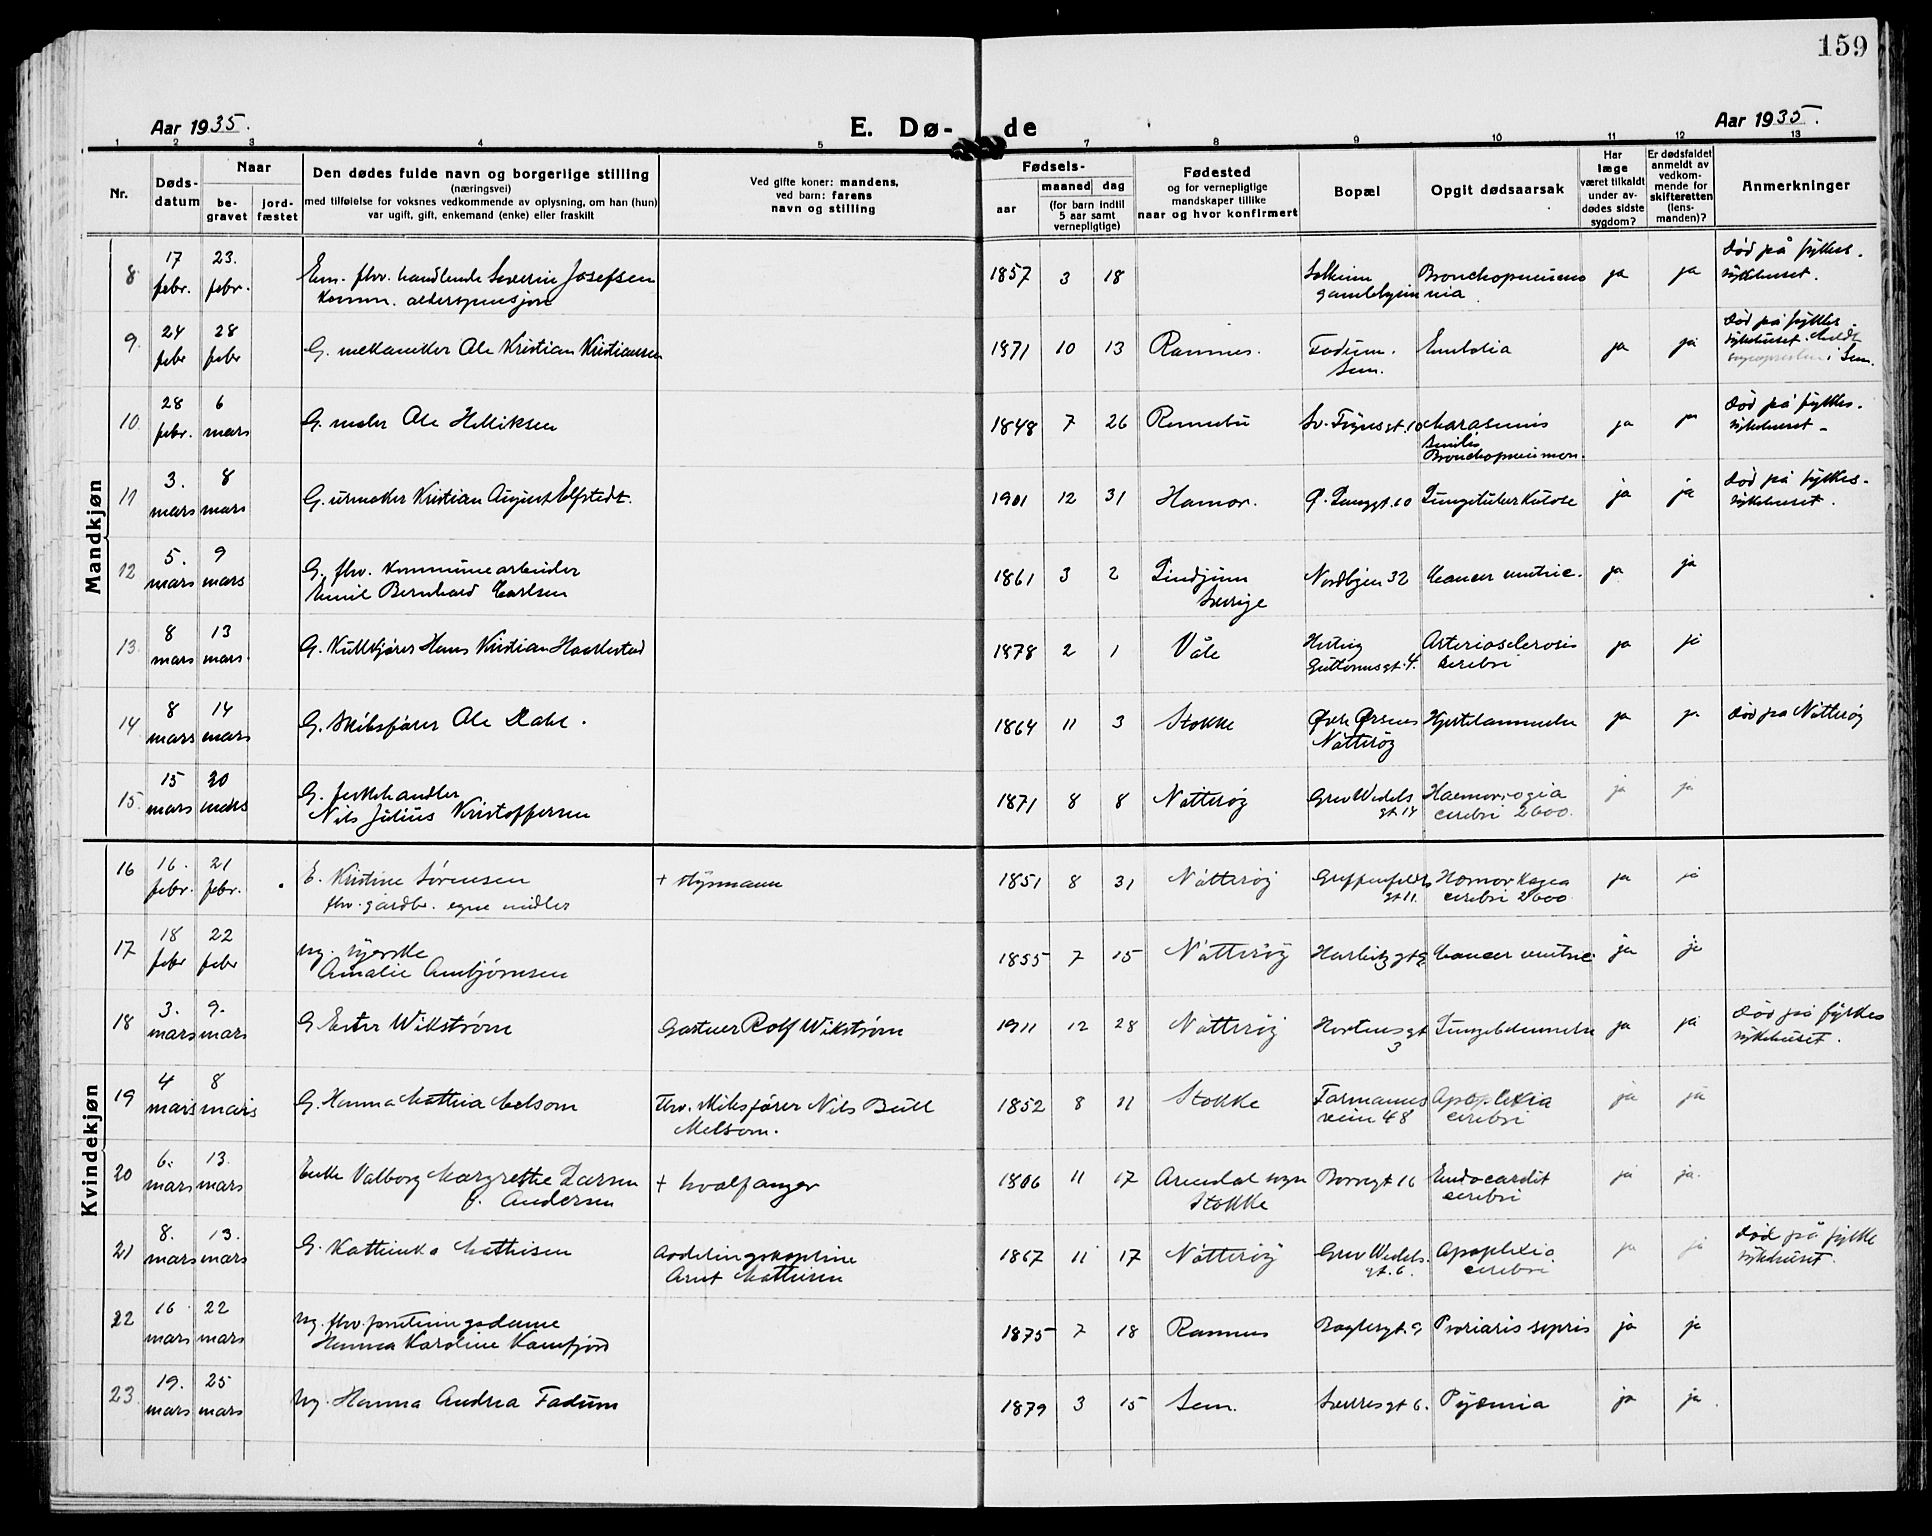 159
Aar 1935.
E. Dø-
de
Aar 1935.
1 2 3 4 5 7 8 9 10 11 12 13
Nr.
Døds-
datum
Naar
be-
gravet
jord-
fæstet
Den dødes fulde navn og borgerlige stilling
(næringsvei)
med tilføielse for voksnes vedkommende av oplysning, om han (hun)
var ugift, gift, enkemand (enke) eller fraskilt
Ved gifte koner: mandens,
ved barn: farens
navn og stilling
Fødsels-
aar
maaned dag
(for barn indtil
5 aar samt
vernepligtige)
Fødested
og for vernepligtige
mandskaper tillike
naar og hvor konfirmert
Bopæl
Opgit dødsaarsak
Har
læge
været tilkaldt
under av-
dødes sidste
sygdom?
Er dødsfaldet
anmeldt av
vedkom-
mende for
skifteretten
(lens-
manden)?
Anmerkninger
Mandkjøn
8 17 febr. 23. febr. Em. fhv. handlende Severin Josefsen
komm. alderspensjon
1857 3 18 Solheim
gamlebyen
Bronchopneumo
nia.
ja ja Død på fylkes-
sykehuset.
9 24 febr 28 febr G. mekaniker Ole Kristian Kristiansen
1871 10 13 Ramnes. Fadum.
Sem.
Embolia ja ja Død på fylkes-
sykehuset. Meldt
sognepresten i Sem.
10 28 febr. 6 mars G. maler Ole Helliksen
1848 7 26 Rennebu Sv. Foynsgt. 10 Marasmus
senilis
Bronchopneumon.
ja ja Død på fylkes-
sykehuset
11 3. mars 8 mars G. urmaker Kristian August Elfstedt.
1901 12 31 Hamar. Ø. Langgt. 60 Lungetuberkulose ja ja Død på fylkes-
sykehuset.
12 5. mars 9 mars G. fhv. kommunearbeider
Emil Bernhard Carlsen
1861 3 2
Sverige
Nordbyen 32 Cancer ventric. ja ja
13. 8 mars 13 mars. G. Kullkjører Hans Kristian Haakestad
1878 2 1 Våle Hertug
Guttormsgt. 4.
Arteriosclerosis
cerebri
ja ja
14 8 mars 14 mars G. Skibsfører Ole Dahl.
1864 11 3 Stokke Øvre Ørsnes
Nøtterøy
Hjertelammelse ja ja Død på Nøtterøy
15. 15 mars 20 mars G. fiskehandler
Nils Julius Kristoffersen
1871 8 8 Nøtterøy Grev Wedels
gt. 14
Haemorrogia
cerebri 2600.
ja ja
Kvindekjøn
16 16. febr. 21 febr. E. Kristine Sørensen
fhv. gårdbr. egne midler
+ styrmann
1851 8 31 Nøtterøy Griffenfeldts
gt 11.
Hæmorhagea
cerebri 2600
ja ja
17 18 febr 22 febr Ug. syerske
Amalie Ambjørnsen
1855 7 15 Nøtterøy Cancer ventric. ja ja
18 3. mars 9. mars G Ester Wikstrøm
Gartner Rolf Wikstrøm
1911 12 28 Nøtterøy Hortensgt
3
Lungebetennelse ja ja Død på fylkes
sykehuset.
19 4 mars 8 mars G. Hanna Mathea Melsom
Fhv. skibsfører Nils Bull
Melsom.
1852 8 11 Stokke Farmanns
veien 48
Apoplexia
cerebri
ja ja
20 6. mars 13. mars Enke Valborg Margrethe Larsen
f. Andersen
+ hvalfanger
1866 11 17 Arendal sogn
Stokke
Borregt 16 Endocardit
cerebri
ja ja.
21 8. mars 13. mars G. Kathinka Mathisen
Avdelingskaptein
Arnt Mathisen
1867 11 17 Nøtterøy Grev Wedels.
gt. 6.
Apoplexia
cerebri
ja ja Død på fylke
sykehuset.
22 16 mars 22 mars Ug. fhv. forretningsdame
Hanna Karoline Kamfjord
1875 7 18 Ramnes Baglergt. 9 Psoriaris sepsis ja ja
23 19. mars 25 mars Ug. Hanna Andrea Fadum
1879 3 15 Sem. Sverresgt 6. Pyæmia ja ja